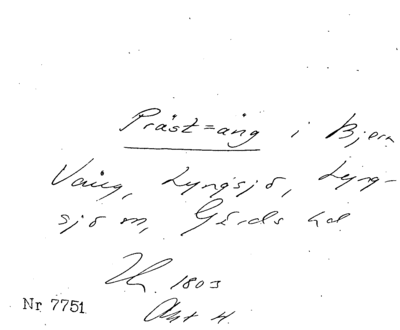 Präst=äng i Bjern
Väng, Lyngsjö, Lyng-
sjö m, Gärds hd
1803
Akt 4
Nr 7751